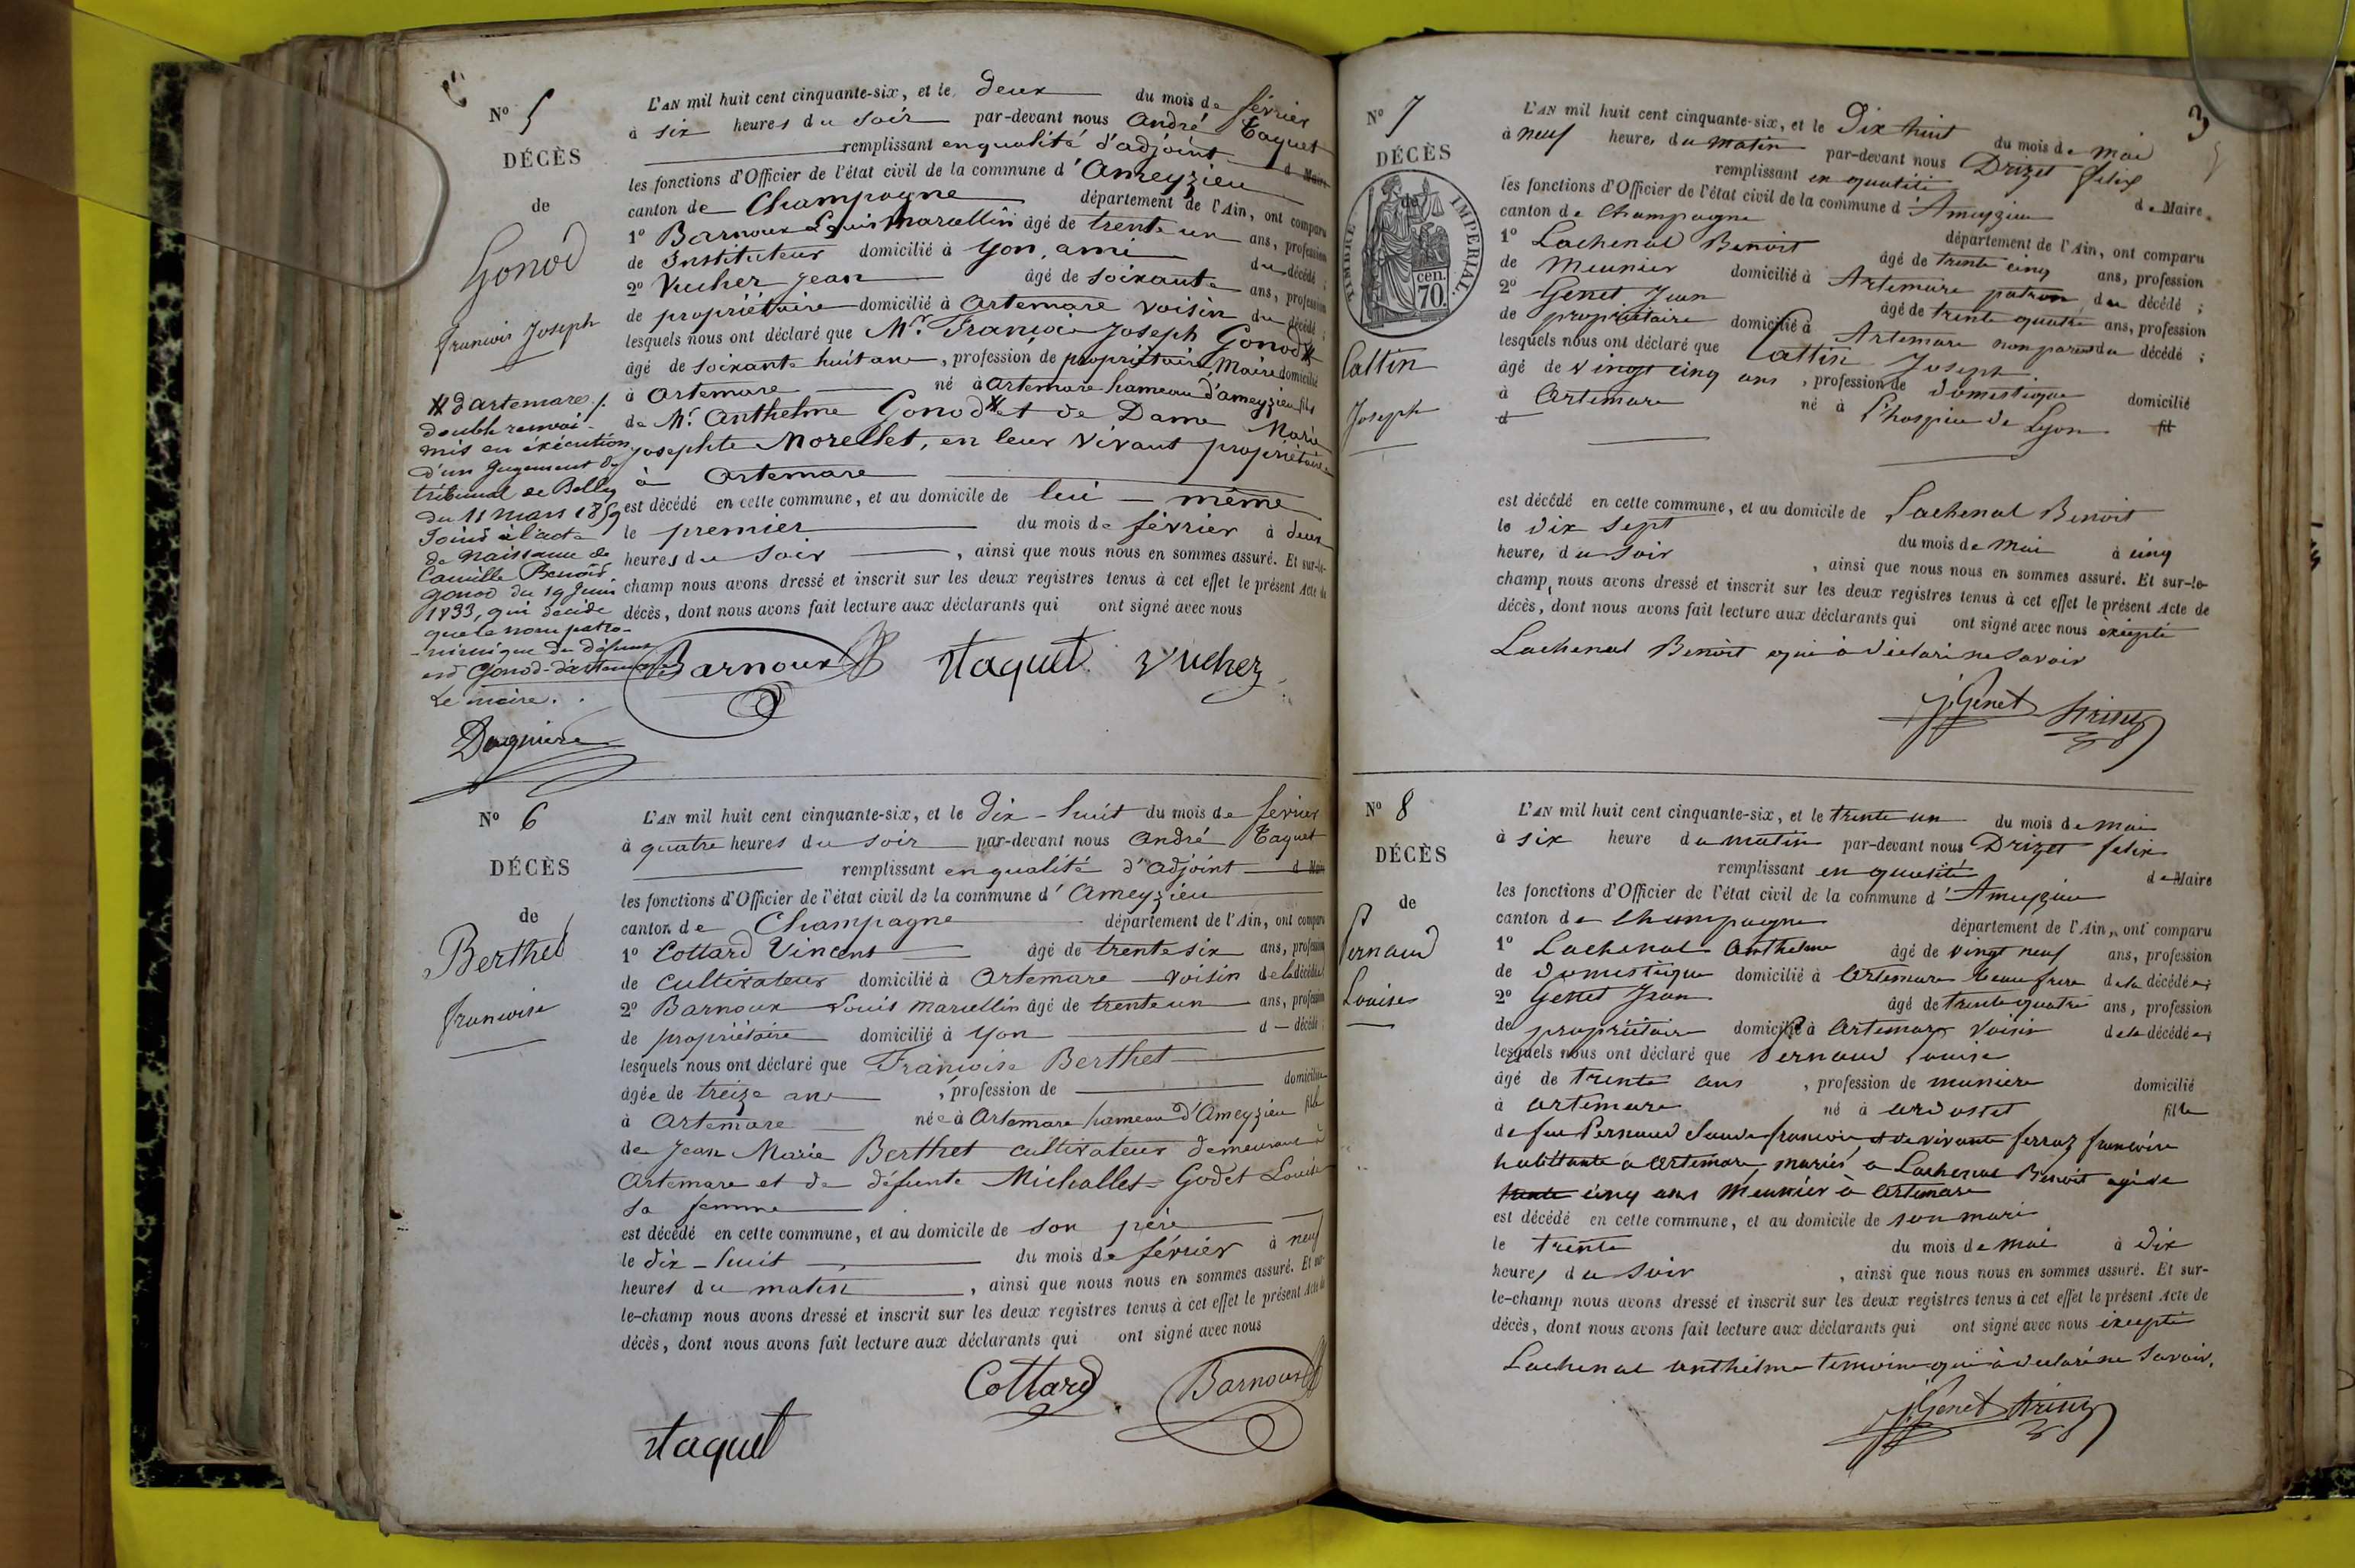 N° 5
DÉCÈS
de
Gonod
francois Joseph
# d'artemare /.
double renvoi
mis en éxécution
d'un Jugement du
tribunal de Belley
du 11 mars 1859
Joint à l'acte
de Naissance de
Camille Benoid
gonod du 19 Juin
1833, qui décide
que le nom patro-
-nimique du défunt
est Gonod-d'artemare
Le maire.
L'AN mil huit cent cinquante-six, et le deux du mois de février
à six heures du soir par-devant nous André Taquet
remplissant en qualité d'adjoint d Maire
les fonctions d'Officier de l'état civil de la commune d'Ameyzieu
canton de Champagne département de l'Ain, ont comparu
1° Barnoux Louis Marcellin âgé de trente un ans, profession
de Instituteur domicilié à Yon, ami du décédé ;
2° Vucher Jean âgé de soixante ans, profession
de propriétaire domicilié à Artemare voisin du décédé ;
lesquels nous ont déclaré que Mr. François Joseph Gonod #
âgé de soixante huit ans, profession de propriétaire, Maire domicilié
à Artemare né à Artemare hameau d'ameyzieu fils
de Mr. Anthelme Gonod # et de Dame Marie
Josephte Morellet, en leur vivant propriétaires
à Artemare
est décédé en cette commune, et au domicile de lui-même
le premier du mois de février à deux
heures du soir, ainsi que nous nous en sommes assuré. Et sur-le-
champ nous avons dressé et inscrit sur les deux registres tenus à cet effet le présent Acte de
décès, dont nous avons fait lecture aux déclarants qui ont signé avec nous
Barnoux Taquet Vucher
N° 6
DÉCÈS
de
Berthet
francoise
L'AN mil huit cent cinquante-six, et le Dix-huit du mois de fevrier
à quatre heures du soir par-devant nous André Taquet
remplissant en qualité d'Adjoint d Maire
les fonctions d'Officier de l'état civil de la commune d'Ameyzieu
canton de Champagne département de l'Ain, ont comparu
1° Cottard Vincent âgé de trente six ans, profession
de cultivateur domicilié à Artemare voisin de la décédée
2° Barnoux Louis Marcellin âgé de trente un ans, profession
de propriétaire domicilié à Yon d décédé ;
lesquels nous ont déclaré que Françoise Berthet
âgée de treize ans, profession de domiciliée
à Artemare née à Artemare hameau d'Ameyzieu fille
de Jean Marie Berthet cultivateur demeurant à
Artemare et de défunte Michallet-Godet Louise
sa femme
est décédé en cette commune, et au domicile de son père
le dix-huit du mois de février à neuf
heures du matin, ainsi que nous nous en sommes assuré. Et sur-
le-champ nous avons dressé et inscrit sur les deux registres tenus à cet effet le présent Acte de
décès, dont nous avons fait lecture aux déclarants qui ont signé avec nous
Cottard Barnoux
Taquet
3
N° 7
DÉCÈS
de
TIMBRE IMPERIAL.
70 cen.
Cattin
Joseph
L'AN mil huit cent cinquante-six, et le Dix huit du mois de mai
à neuf heures du matin par-devant nous Drizet felix
remplissant en qualité de Maire
les fonctions d'Officier de l'état civil de la commune d'Ameyzieu
canton de Champagne département de l'Ain, ont comparu
1° Lachenal Benoit âgé de trente cinq ans, profession
de Meunier domicilié à Artemare patron du décédé ;
2° Genet Jean âgé de trente quatre ans, profession
de propriétaire domicilié à Artemare non parent du décédé ;
lesquels nous ont déclaré que Cattin Joseph
âgé de vingt cinq ans, profession de domestique domicilié
à Artemare né à l'hospice de Lyon fil
d
est décédé en cette commune, et au domicile de Lachenal Benoit
le dix sept du mois de mai à cinq
heures du soir, ainsi que nous nous en sommes assuré. Et sur-le-
champ, nous avons dressé et inscrit sur les deux registres tenus à cet effet le présent Acte de
décès, dont nous avons fait lecture aux déclarants qui ont signé avec nous éxcepté
Lachenal Benoit qui à déclaré ne savoir
J. Genet Drizet
N° 8
DÉCÈS
de
Pernaud
Louise
L'AN mil huit cent cinquante-six, et le trente un du mois de mai
à six heure du matin par-devant nous Drizet felix
remplissant en qualité de Maire
les fonctions d'Officier de l'état civil de la commune d'Ameyzieu
canton de Champagne département de l'Ain, ont comparu
1° Lachenal Anthelme âgé de vingt neuf ans, profession
de domestique domicilié à Artemare beau frere de la décédée ;
2° Genet Jean âgé de trente quatre ans, profession
de propriétaire domicilié à Artemare voisin de la décédée ;
lesquels nous ont déclaré que Pernaud Louise
âgé de trente ans, profession de muniere domicilié
à Artemare né à Ardosset fille
de feu Pernaud Claude francois et de vivante ferraz francoise
habittante à Artemare, mariés à Lachenal Benoit agé de
trente cinq ans Meunier à Artemare
est décédé en cette commune, et au domicile de son mari
le trente du mois de mai à dix
heures du soir, ainsi que nous nous en sommes assuré. Et sur-
le-champ nous avons dressé et inscrit sur les deux registres tenus à cet effet le présent Acte de
décès, dont nous avons fait lecture aux déclarants qui ont signé avec nous éxcepté
Lachenal Anthelme temoin qui à declaré ne savoir.
J. Genet Drizet